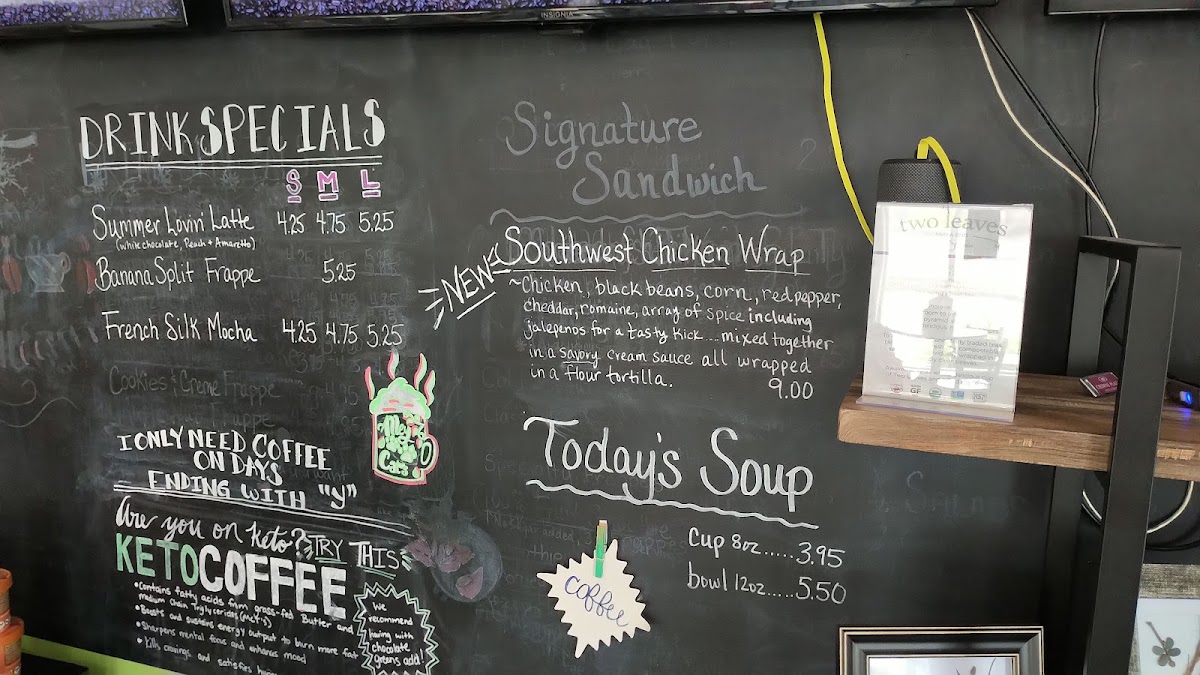 INSIGNIA
DRINK SPECIALS
S M L
Summer Lovin' Latte 4.25 4.75 5.25
(white chocolate, Peach + Amaretto)
Banana Split Frappe 5.25
French Silk Mocha 4.25 4.75 5.25
Cookies & Creme Frappe
I ONLY NEED COFFEE
ON DAYS
ENDING WITH "y"
Are you on keto?
TRY THIS
KETO COFFEE
• Contains fatty acids from grass-fed Butter and
medium Chain Triglycerides (MCT's)
• Boosts and sustains energy output to burn more fat
• Sharpens mental focus and enhances mood
• Kills cravings and satisfies
We
recommend
having with
chocolate
greens add!
Signature
Sandwich
NEW
Southwest Chicken Wrap
~Chicken, black beans, corn, red pepper,
cheddar, romaine, array of spice including
jalepenos for a tasty kick...mixed together
in a savory cream sauce all wrapped
in a flour tortilla. 9.00
Today's Soup
Cup 8oz.....3.95
bowl 12oz.....5.50
coffee
two leaves